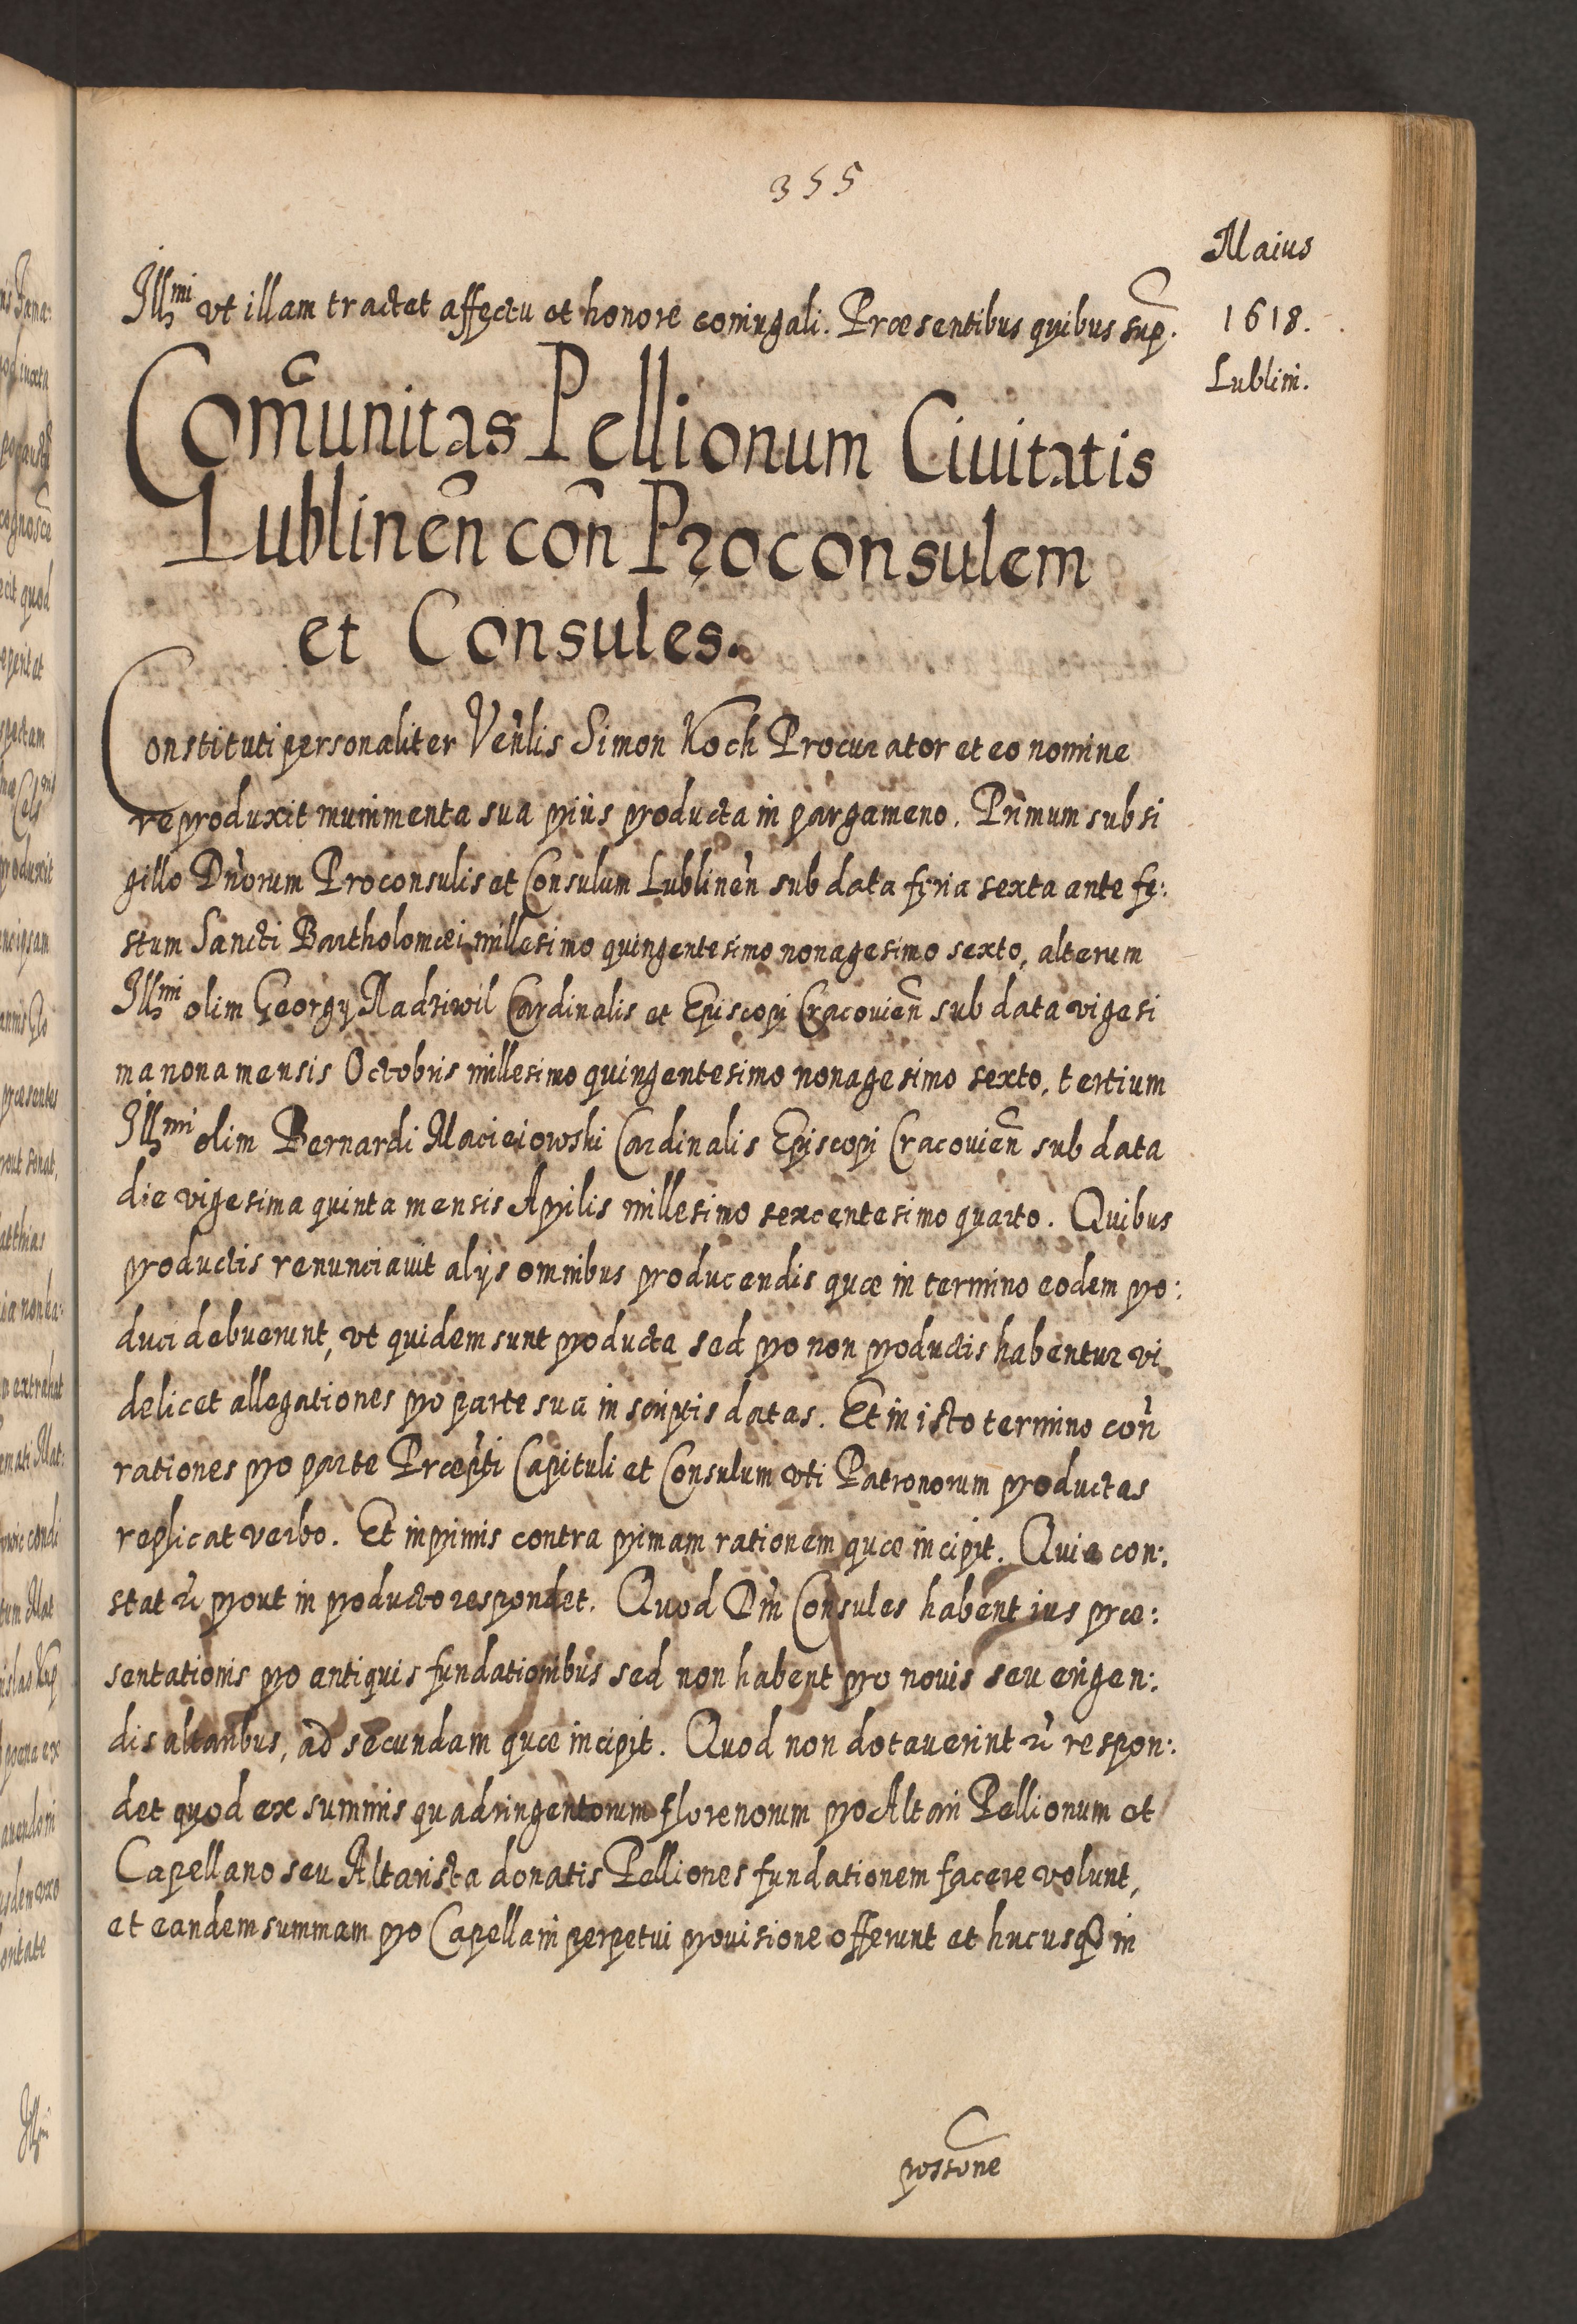 355
Maius
1618.
Lublini.
Illmi vt illam tractet affectu et honore coniugali. Præsentibus quibus sup̃.
Com̃unitas Pellionum Ciuitatis
Lublineñ coñ Proconsulem
et Consules.
Constituti personaliter Veñlis Simon Koch Procurator et eo nomine
reproduxit munimenta sua prius producta in pargameno. Primum sub si
gillo Dñorum Proconsulis et Consulum Lublineñ sub data feria sexta ante fe:
stum Sancti Bartholomæi millesimo quingentesimo nonagesimo sexto, alterum
Illmi olim Georgy Radziwil Cardinalis et Episcopi Cracouieñ sub data vigesi
ma nona mensis Octobris millesimo quingentesimo nonagesimo sexto, tertium
Illmi olim Bernardi Macieiowski Cardinalis Episcopi Cracouieñ sub data
die vigesima quinta mensis Aprilis millesimo sexcentesimo quarto. Quibus
productis renunciauit alys omnibus producendis quæ in termino eodem pro:
duci debuerunt, vt quidem sunt producta sed pro non productis habentur vi
delicet allegationes pro parte sua in scriptis datas. Et in isto termino coñ
rationes pro parte Præpti Capituli et Consulum vti Patronorum productas
replicat verbo. Et inprimis contra primam rationem quæ incipit. Quia con:
stat &c prout in producto respondet. Quod Dñi Consules habent ius præ:
sentationis pro antiquis fundationibus sed non habent pro nouis seu erigen:
dis altaribus, ad secundam quæ incipit. Quod non dotauerint &c respon:
det quod ex summis quadringentorum florenorum pro Altari Pellionum et
Capellano seu Altarista donatis Pelliones fundationem facere volunt,
et eandem summam pro Capellani perpetui prouisione offerunt et hucusq3 in
possone